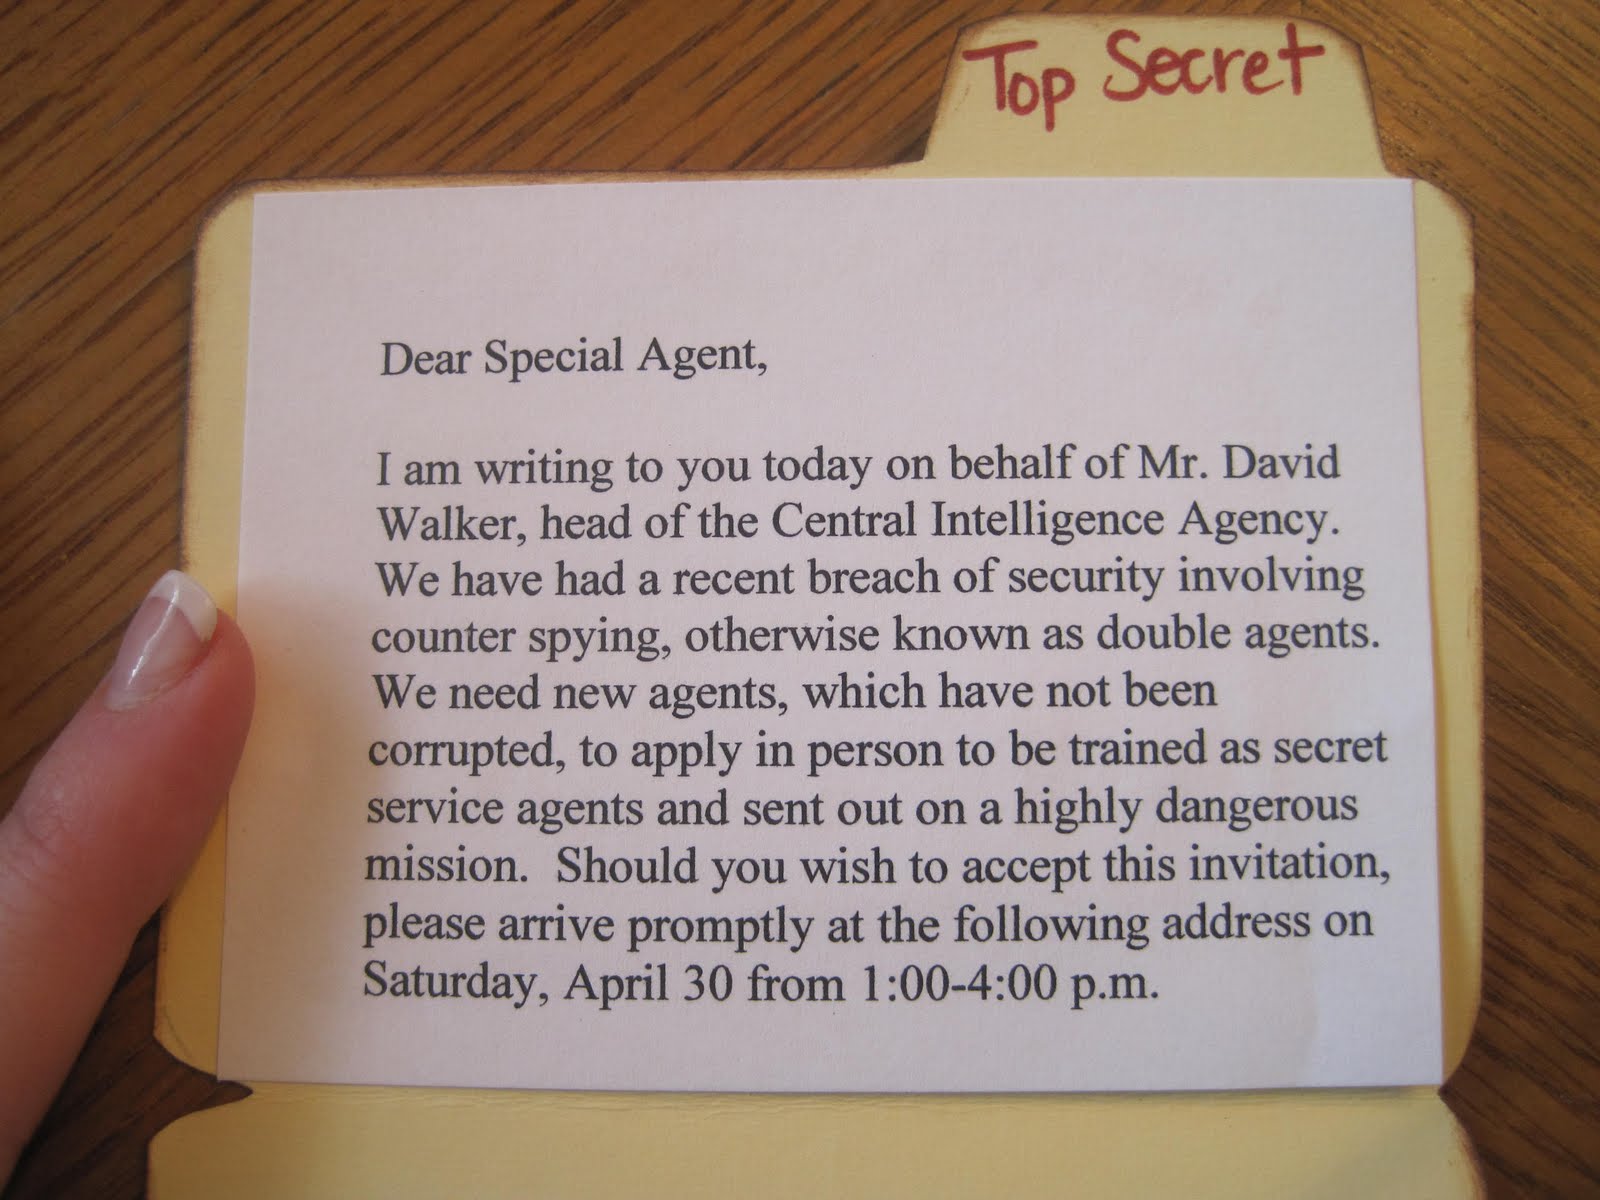 Top Secret
Dear Special Agent,
I am writing to you today on behalf of Mr. David
Walker, head of the Central Intelligence Agency.
We have had a recent breach of security involving
counter spying, otherwise known as double agents.
We need new agents, which have not been
corrupted, to apply in person to be trained as secret
service agents and sent out on a highly dangerous
mission.  Should you wish to accept this invitation,
please arrive promptly at the following address on
Saturday, April 30 from 1:00-4:00 p.m.